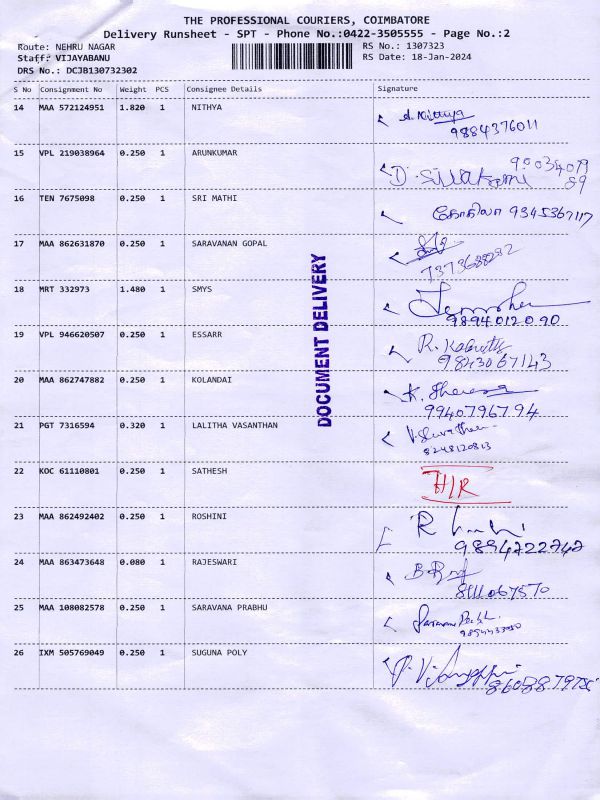 THE PROFESSIONAL COURIERS, COIMBATORE
Delivery Runsheet - SPT - Phone No.:0422-3505555 - Page No.:2
Route: NEHRU NAGAR RS No.: 1307323
Staff: VIJAYABANU RS Date: 18-Jan-2024
DRS No.: DCJB130732302
S No Consignment No Weight PCS Consignee Details Signature
14 MAA 572124951 1.820 1 NITHYA A. Nithya
9884376011
15 VPL 219038964 0.250 1 ARUNKUMAR 90034079
D. Sivakami 89
16 TEN 7675098 0.250 1 SRI MATHI கோகிலா 9345367117
17 MAA 862631870 0.250 1 SARAVANAN GOPAL
7373688282
18 MRT 332973 1.480 1 SMYS
9894012090
19 VPL 946620507 0.250 1 ESSARR R.
9843067143
20 MAA 862747882 0.250 1 KOLANDAI K.
9940796794
21 PGT 7316594 0.320 1 LALITHA VASANTHAN
8248120813
22 KOC 61110801 0.250 1 SATHESH H/R
23 MAA 862492402 0.250 1 ROSHINI
9894722742
24 MAA 863473648 0.080 1 RAJESWARI
8111067570
25 MAA 108082578 0.250 1 SARAVANA PRABHU
26 IXM 505769049 0.250 1 SUGUNA POLY
DOCUMENT DELIVERY